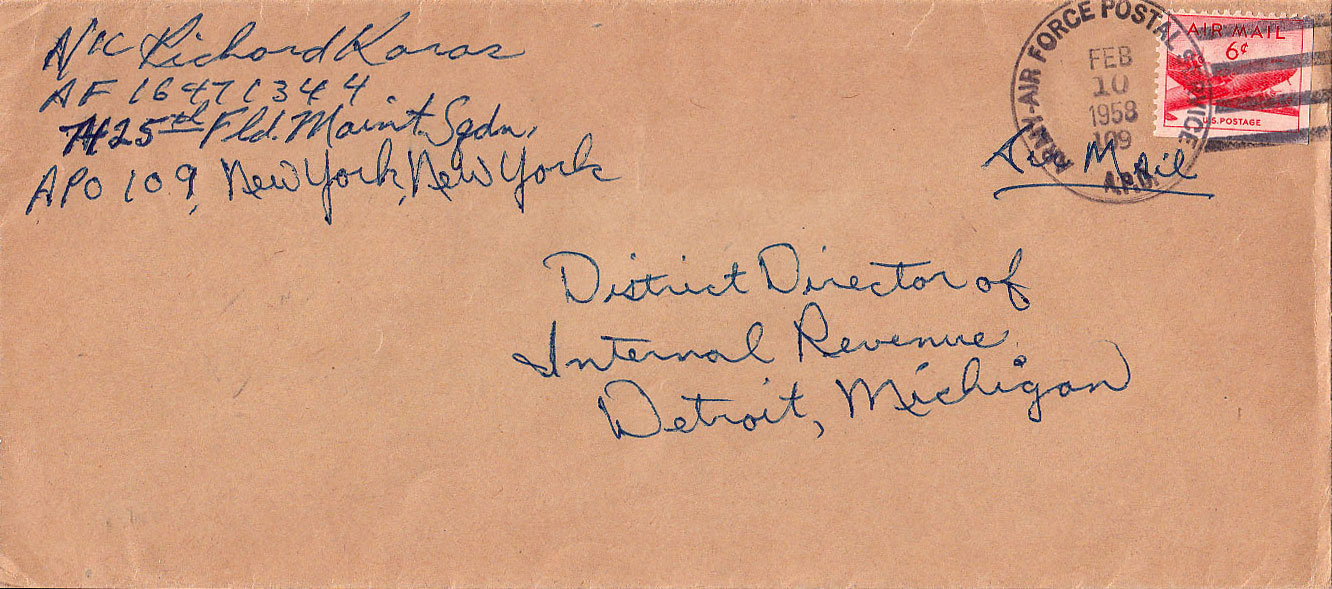 A/1C Richard Karas
AF 16471344
7425th Fld. Maint. Sqdn.
APO 109, New York, New York
ARMY-AIR FORCE POSTAL SERVICE
FEB
10
1958
109
A.P.O.
AIR MAIL
6¢
U.S. POSTAGE
Air Mail
District Director of
Internal Revenue
Detroit, Michigan